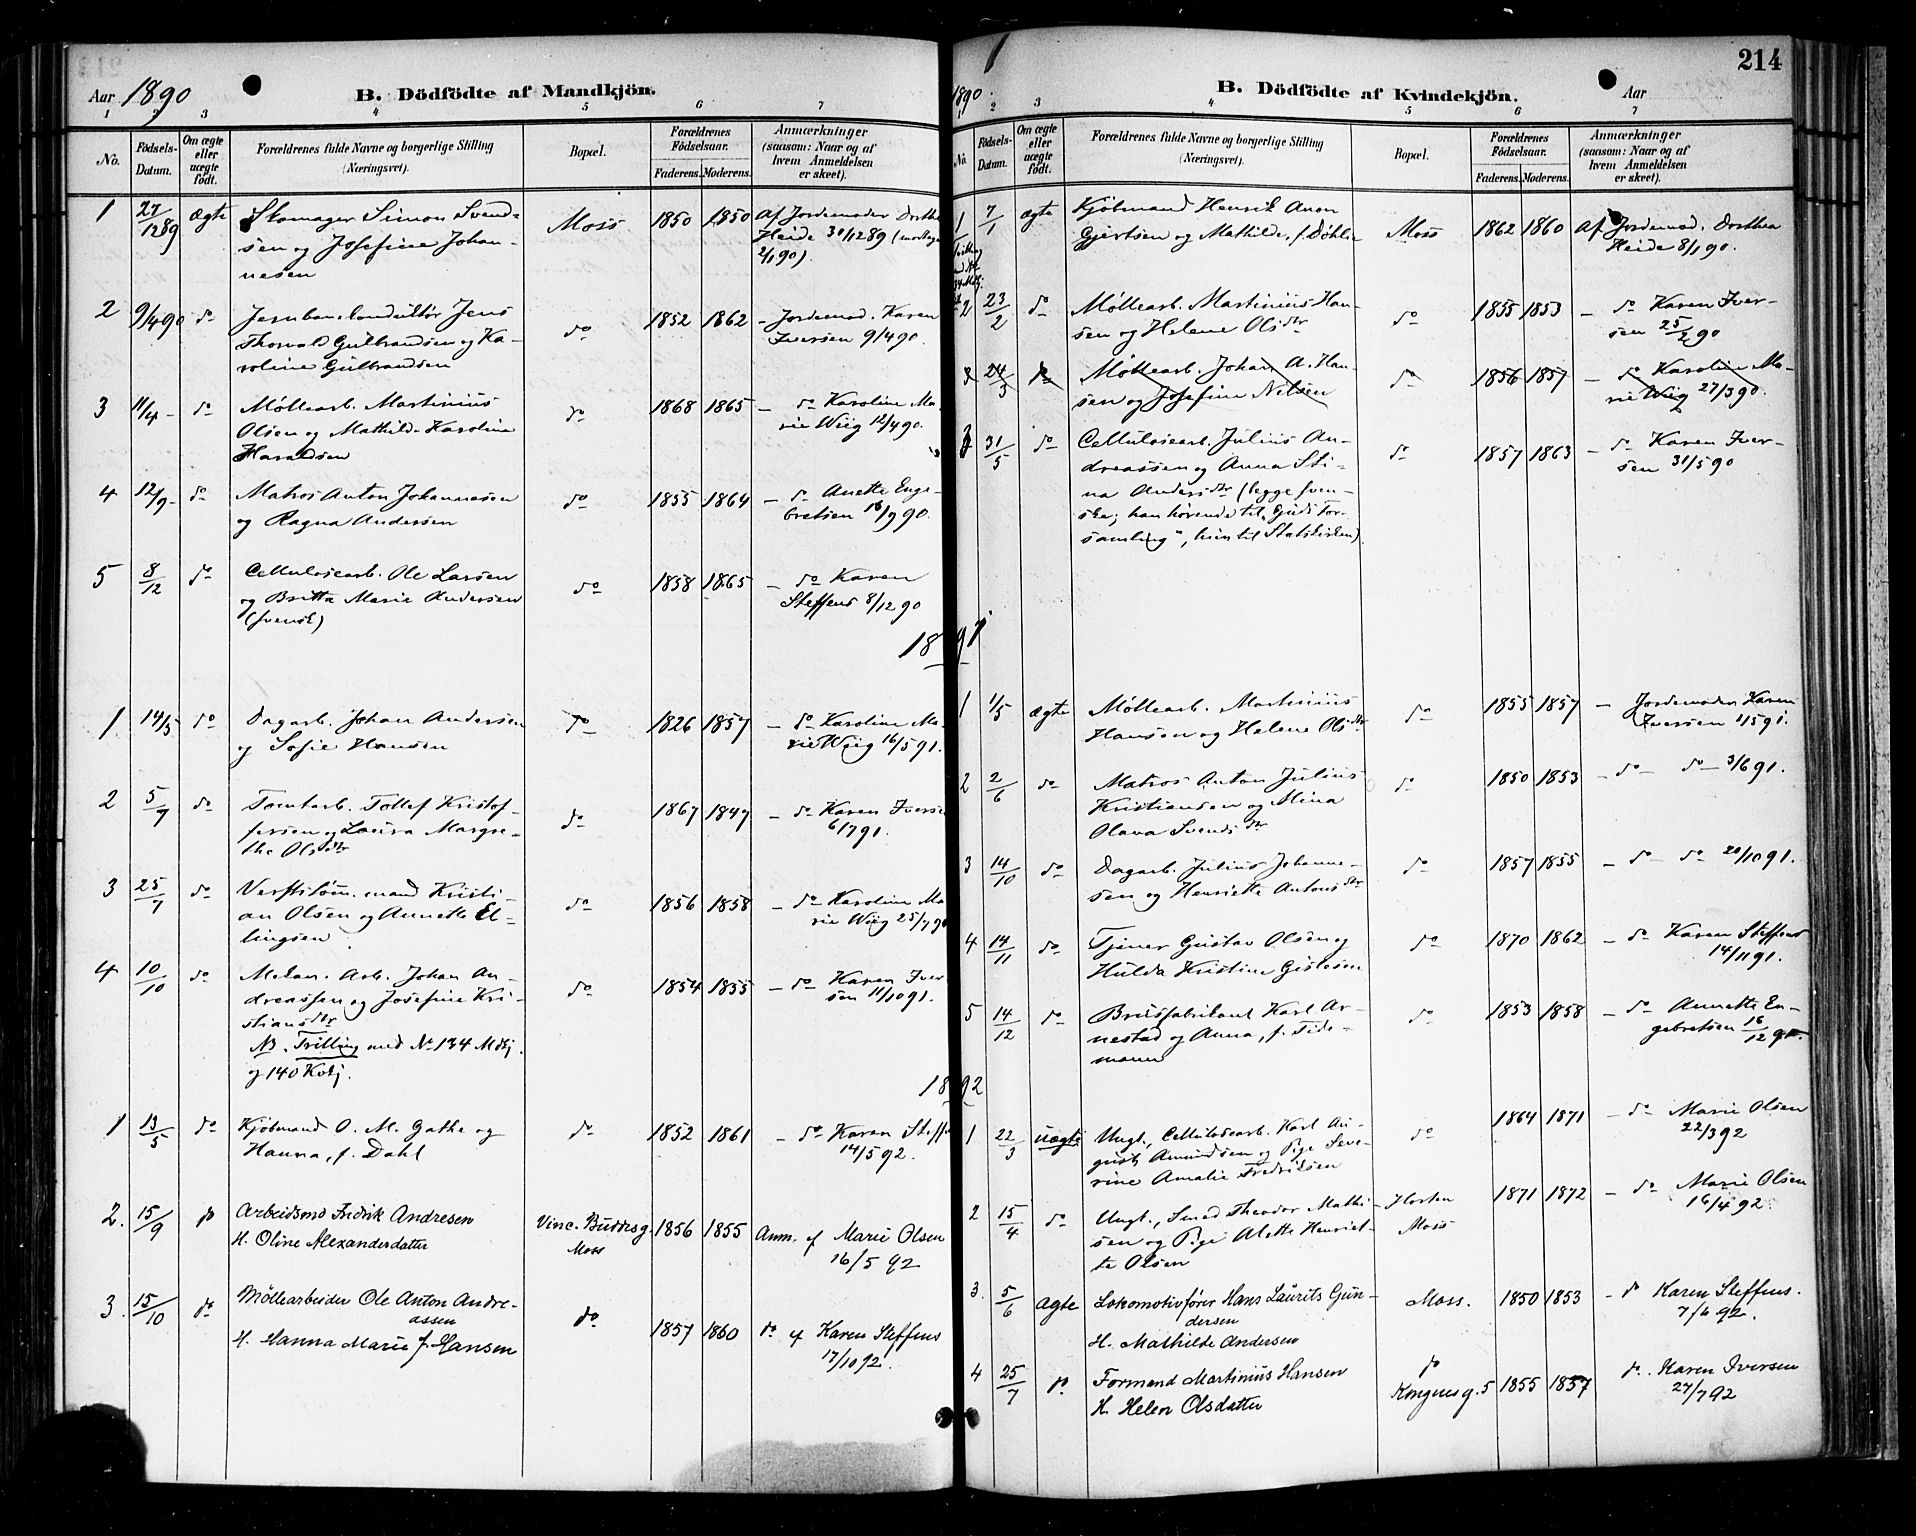 Aar 1890
B. Dödfödte af Mandkjön.
1 2 3 4 5 6 7
No.
Födsels-
Datum.
Om ægte
eller
uægte
født.
Forældrenes fulde Navne og borgerlige Stilling
(Næringsvei).
Bopæl.
Forældrenes
Födselsaar.
Faderens. Moderens.
Anmærkninger
(saasom: Naar og af
hvem Anmeldelsen
er skeet).
1 27/12 89 ægte Skomager Simon Svend- Moss 1850 1850 Af Jordemoder Dorthea
sen og Josefine Johan- Heide 30/12 89 (modtaget
nesen 2/1 90)
2 9/4 90 do Jernbanekonduktør Jens do 1852 1862 - Jordemod. Karen
Thorvald Gulbrandsen og Ka- Iversen 9/4 90.
roline Gulbrandsen
3 11/4 - do Møllearb. Martinius do 1868 1865 - do Karoline Ma-
Olsen og Mathilde Karoline rie Wiig 12/4 90.
Haraldsen
4 12/9 - do Matros Anton Johannesen do 1855 1864 - do Anette Enge-
og Ragna Andersen bretsen 16/9 90.
5 8/12 do Cellulosearb. Ole Larsen do 1858 1865 - do Karen
og Britta Marie Andersen Steffens 8/12 90
(svensk)
1891
1 14/5 do Dagarb. Johan Andersen do 1826 1857 - do Karoline Ma-
og Sofie Hansen rie Wiig 16/5 91.
2 5/7 do Tomtarb. Tollef Kristof- do 1867 1847 - do Karen Iversen
fersen og Laura Margre- 6/7 91.
the Olsdtr
3 25/7 do Verftstøm. mand Kristi- do 1856 1858 - do Karoline Ma-
an Olsen og Annette El- rie Wiig 25/7 90
lingsen
4 10/10 do Mekan. Arb. Johan An- do 1854 1855 - do Karen Iver-
dreassen og Josefine Kri- sen 11/10 91.
stiansdtr
NB. Trilling med No 134 Mdkj.
og 140 Kvkj.
1892
1 13/5 do Kjøbmand O. M. Gathe og do 1852 1861 - do Karen Steffens
Hanna, f. Dahl 14/5 92.
2. 15/9 do Arbeidsmd Fredrik Andresen Vinc. Buddesg. 1856 1855 Anm. af Marie Olsen
H. Oline Alexanderdatter Moss 16/5 92
3. 15/10 do Møllearbeider Ole Anton Andre- do 1857 1860 do af Karen Steffens
assen 17/10 92.
H. Hanna Marie f. Hansen
214
1890
B. Dödfödte af Kvindekjön.
Aar
2 3 4 5 6 7
No.
Födsels-
Datum.
Om ægte
eller
uægte
født.
Forældrenes fulde Navne og borgerlige Stilling
(Næringsvei).
Bopæl.
Forældrenes
Födselsaar.
Faderens. Moderens.
Anmærkninger
(saasom: Naar og af
hvem Anmeldelsen
er skeet).
1 7/1 ægte Kjøbmand Henrik Anon Moss 1862 1860 Af Jordemod. Dorthea
Gjertsen og Mathilde, f. Døhlie Heide 8/1 90.
2 23/2 do Møllearb. Martinius Han- do 1855 1853 - do Karen Iver-
sen og Helene Olsdtr sen 25/2 90
3 24/3 do Møllearb. Johan A. Han- do 1856 1857 - do Karoline Ma-
sen og Josefine Nelsen rie Wiig 27/3 90.
3 31/5 do Cellulosearb. Julius An- do 1857 1863 - do Karen Iver-
dreassen og Anna Sti- sen 31/5 90
na Andersdtr (begge sven-
ske; han hørende til "Guds For-
samling", hun til Statskirken)
1 1/5 ægte Møllearb. Martinius do 1855 1857 - Jordemoder Karen
Hansen og Helene Olsdtr Iversen 1/5 91.
2 2/6 do Matros Anton Julius do 1850 1853 - do - do - 3/6 91.
Kristiansen og Mina
Olava Svendsdtr
3 14/10 do Dagarb. Julius Johanne- do 1857 1855 - do - do 20/10 91.
sen og Henriette Antonsdtr
4 14/11 do Tjener Gustav Olsen og do 1870 1862 - do Karen Steffens
Hulda Kristine Gislesen 14/11 91.
5 14/12 do Brusfabrikant Karl Ar- do 1853 1858 - do Annette En-
nestad og Anna, f. Tide- gebretsen 16/12 91.
mann
1 22/3 uægte Ungk., Cellulosearb. Karl Au- do 1864 1871 - do Marie Olsen
gust Amundsen og Pige Seve- 22/3 92
rine Amalie Fredriksen
2 15/4 do Ungk., Smed Theodor Mathi- Horten 1871 1872 - do Marie Olsen
sen og Pige Alette Henriet- Moss 16/4 92.
te Olsen
3. 5/6 ægte Lokomotivfører Hans Laurits Gun- Moss. 1850 1853 - do Karen Steffens.
dersen 7/6 92.
H. Mathilde Andersen
4 25/7 do Formand Martinius Hansen do 1855 1857 do. Karen Iversen
H. Helen Olsdatter Kongensg. 5 27/7 92